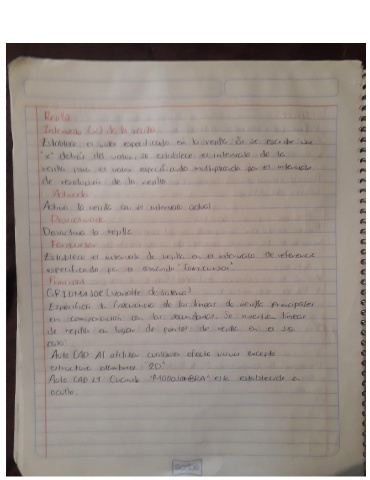 Rejilla
Intervalo (x) de la rejilla
Establece el valor especificado en la rejilla. Si se escribe una
"x" detrás del valor, se establece el intervalo de la
rejilla con el valor especificado multiplicado por el intervalo
de resolución de la rejilla
Activado
Activa la rejilla en el intervalo actual
Desactivado
Desactiva la rejilla
Forzcursor
Establece el intervalo de rejilla en el intervalo de referencia
especificado por el comando "forzcursor"
Principal
GRIDMAJOR (variable de sistema)
Especifica la frecuencia de las líneas de rejilla principales
en comparación con las secundarias. Se muestra líneas
de rejilla en lugar de puntos de rejilla en el
Auto CAD utiliza cualquier efecto visual excepto
estructura alámbrica "2D"
Auto CAD LT Cuando "MODOSOMBRA" está establecido en
oculto.